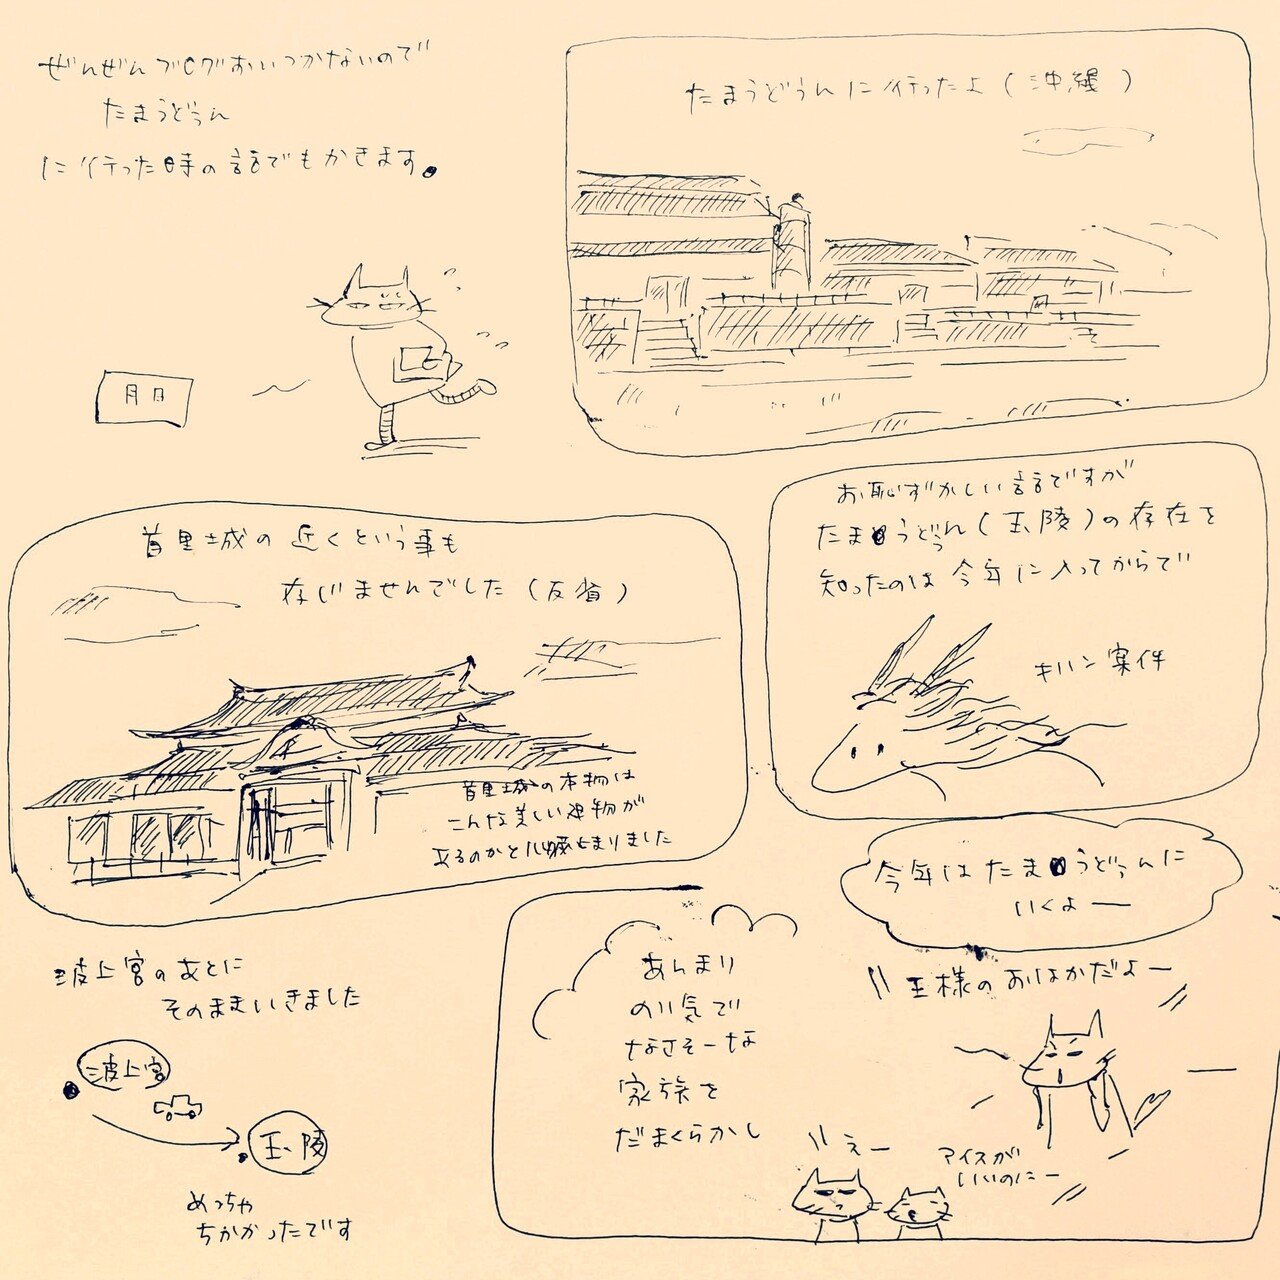 ぜんぜんブログおいつかないので
たまうどぅん
に行った時の話でもかきます。
月日
たまうどぅんに行ったよ(沖縄)
お恥ずかしい話ですが
たまうどぅん(玉陵)の存在を
知ったのは今年に入ってからで
キリン案件
首里城の近くという事も
存じませんでした(反省)
首里城の本物は
こんな美しい建物が
あるのかと心臓止まりました
今年はたまうどぅんに
いくよー
王様のおはかだよー
あんまり
のり気で
なさそーな
家族を
だまくらかし
えー
アイスが
いいのにー
波上宮のあとに
そのままいきました
波上宮
玉陵
めっちゃ
ちかかったです